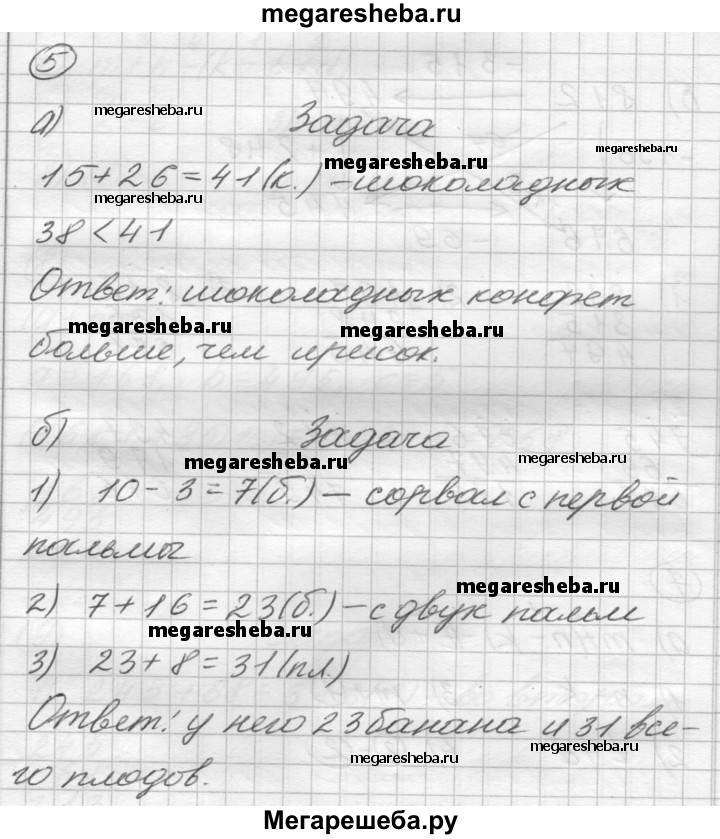 megaresheba.ru
5
megaresheba.ru
а) Задача
megaresheba.ru
megaresheba.ru
15+26=41(к.) – шоколадных
megaresheba.ru
38<41
Ответ: шоколадных конфет
megaresheba.ru megaresheba.ru
больше, чем ирисок.
б) Задача
megaresheba.ru megaresheba.ru
1) 10-3=7(б.) – сорвал с первой
пальмы
megaresheba.ru
2) 7+16=23(б.) – с двух пальм
megaresheba.ru
3) 23+8=31(пл.)
Ответ: у него 23 банана и 31 все-
megaresheba.ru
megaresheba.ru
го плодов.
Мегарешеба.ру